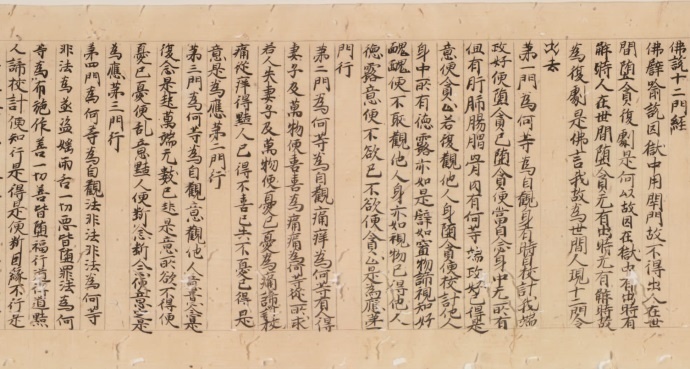 佛說十二門經
佛辟喻說因獄中用閉門故不得出人在世
間墮貪復劇是何以故因在獄中有出時有
解時人在世間墮貪无有出時无有解時故
為復劇是佛言我故為世間人現十二門令
出去
第一門為何等為自觀身有時自校計我端
政好便墮貪已墮貪便當自念身中无所有
但有肝肺腸胃骨肉有何等端政如是得是
意便貪止若復觀他人身墮貪便校計他人
身中所有惡露亦如是辟如寶物諦視知好
醜醜便不取觀他人身亦如視物已得他人
惡露意便不欲已不欲便貪止是為應第一
門行
第二門為何等為自觀痛痒為何等有人得
妻子及萬物便喜喜為痛痛為何等從所求
若人失妻子及萬物便憂已憂為痛諦校
痛從痒得黠人已得不喜已亡不憂已得是
意是為應第二門行
第三門為何等為自觀意觀他人意意念是
復念是趣萬端无數已走是意所欲不得便
憂已憂便乱意黠人便斷念斷念便意定是
為應第三門行
第四門為何等為自觀法非法非法為何等
非法為殺盜婬兩舌一切惡皆墮罪法為何
等為布施作善一切善皆墮福行道得道黠
人諦校計便知行是得是便斷因緣不行是